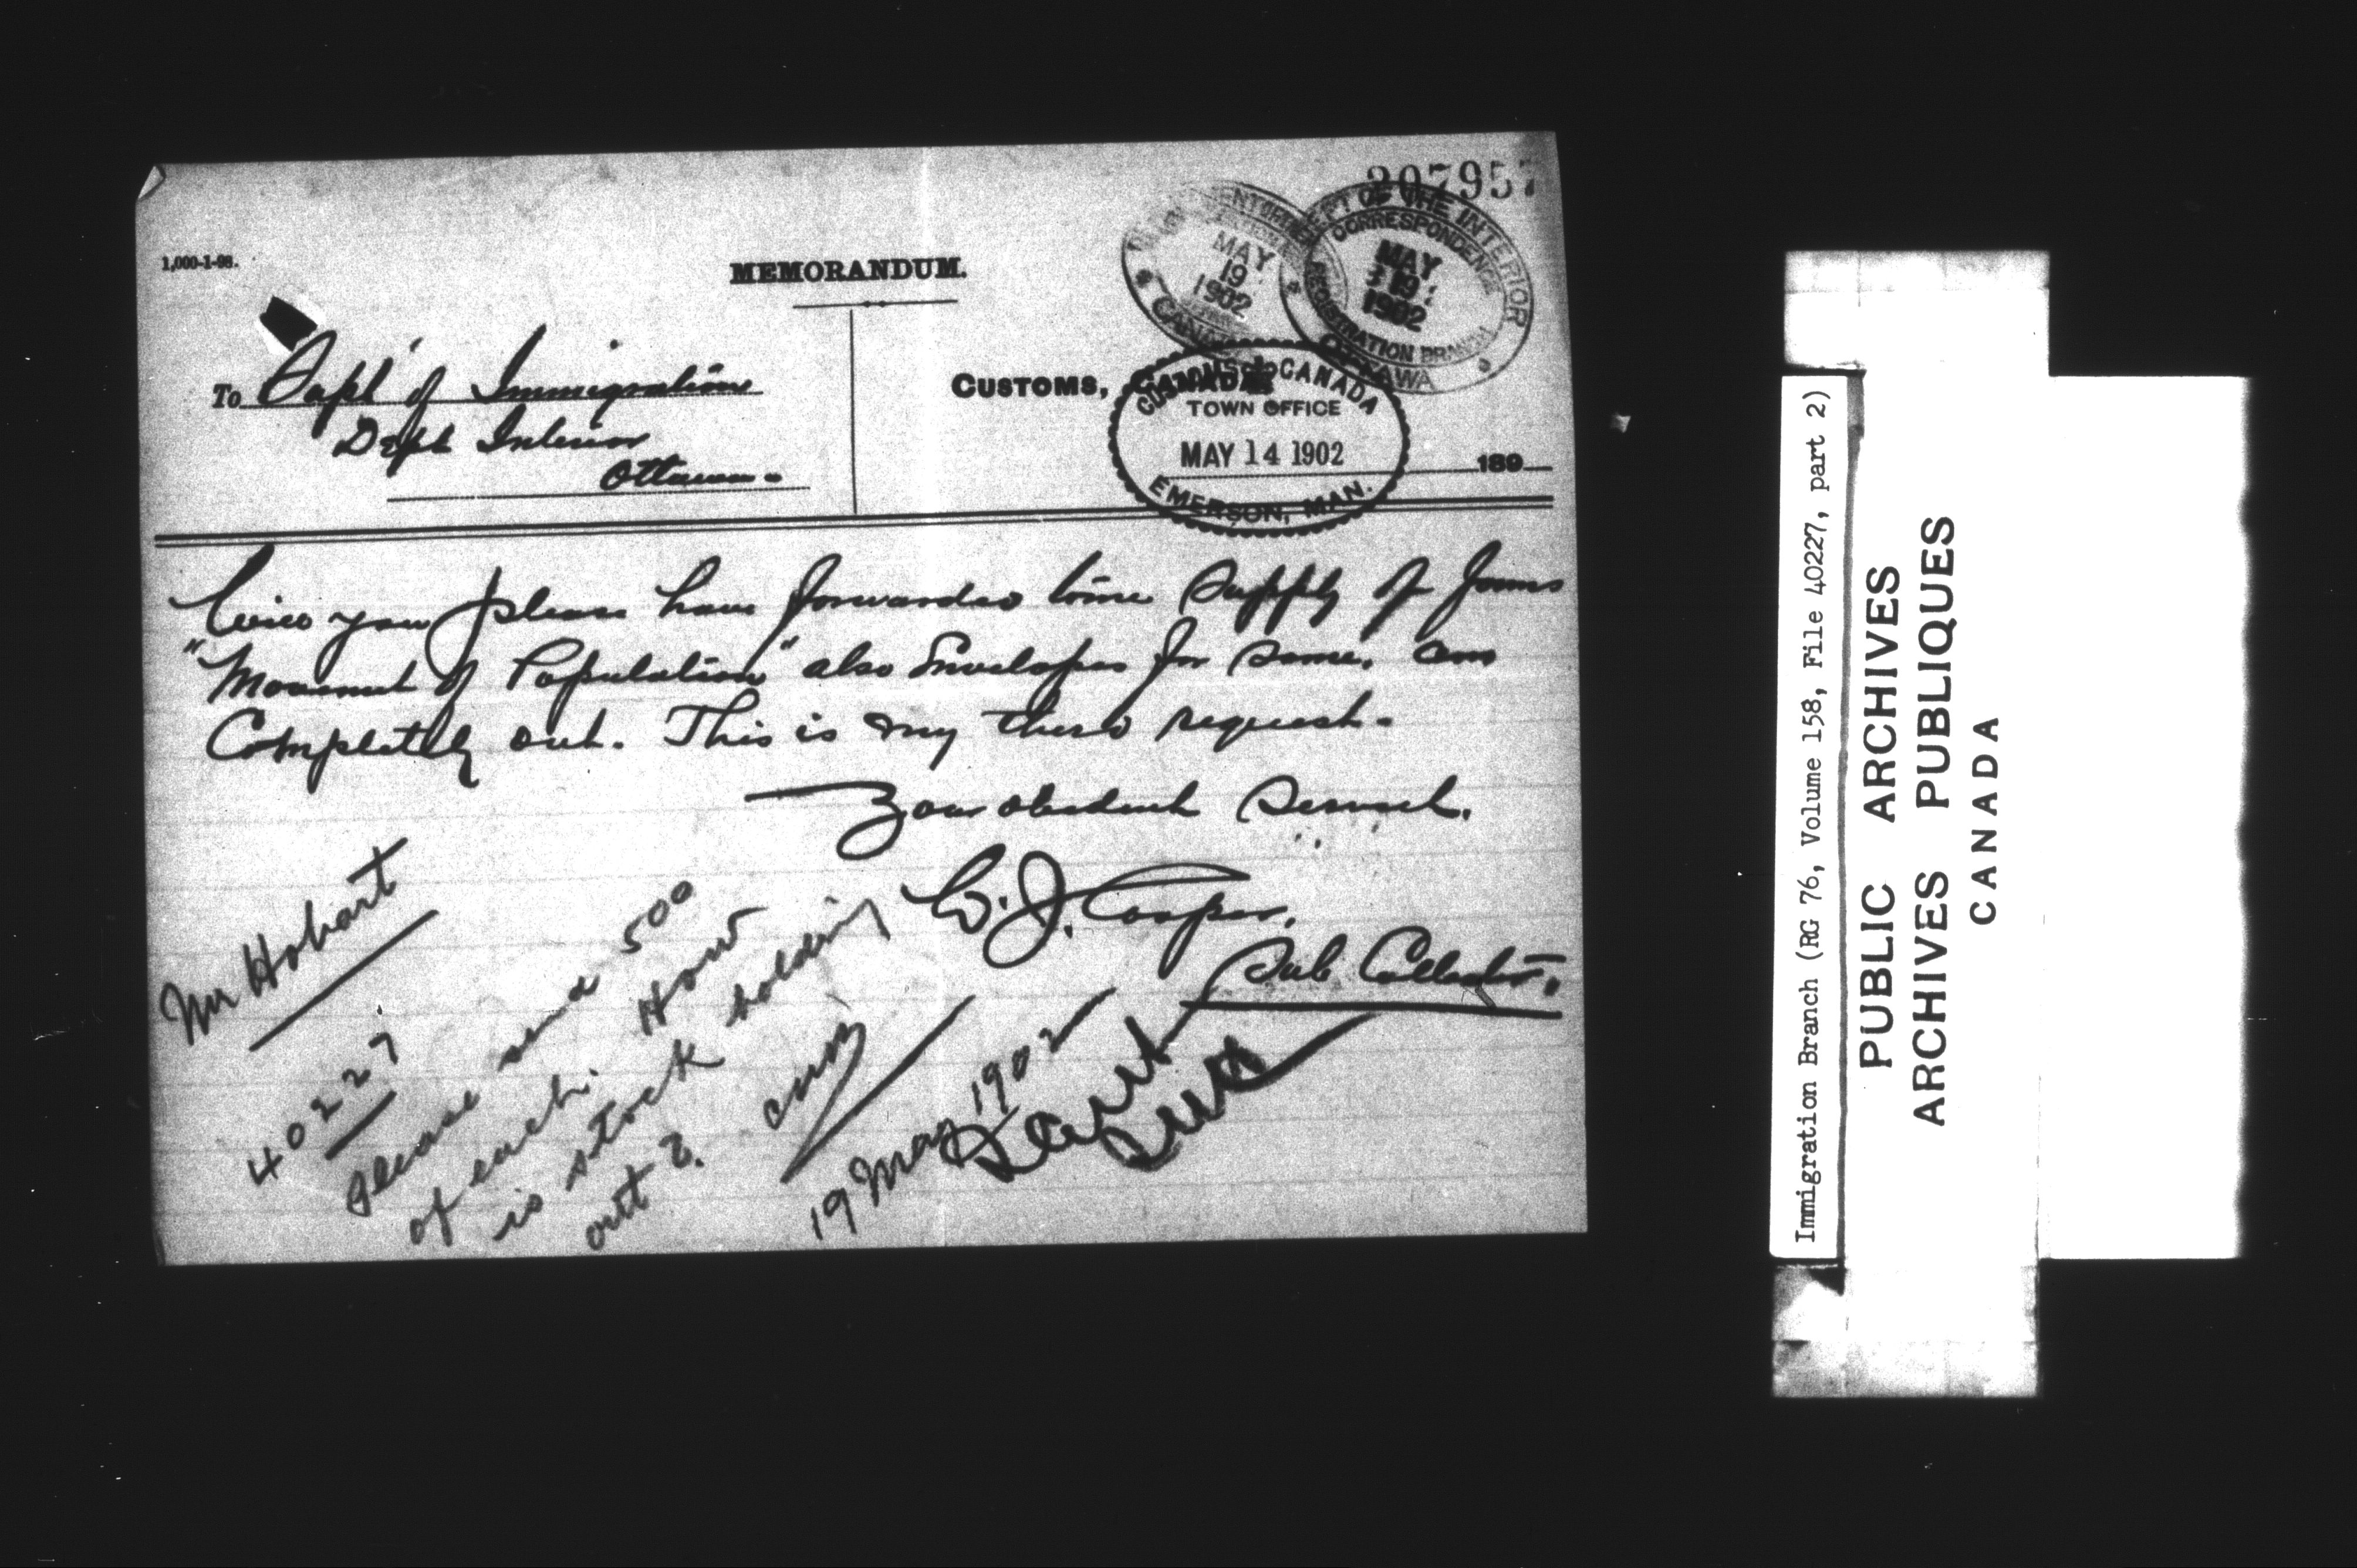 207957
1,000-1-98.
MEMORANDUM.
DEPT OF THE INTERIOR
CORRESPONDENCE
MAY
19
1902
REGISTRATION BRANCH
OTTAWA
MAY
19
1902
CANADA
To Dept of Immigration
Dept Interior
Ottawa
CUSTOMS, CANADA,
CUSTOMS CANADA
TOWN OFFICE
MAY 14 1902
EMERSON, MAN.
189
Will you please have forwarded me supply of forms
"Movement of Population" also Envelopes for same. am
Completely out. This is my third request.
Your obedient Servant.
W. J. Cooper.
Sub Collector.
Mr Hobart
40227
Please send 500
of each. How
is stock holding
out?
19 May 1902
Immigration Branch (RG 76, Volume 158, File 40227, part 2)
PUBLIC ARCHIVES
ARCHIVES PUBLIQUES
CANADA